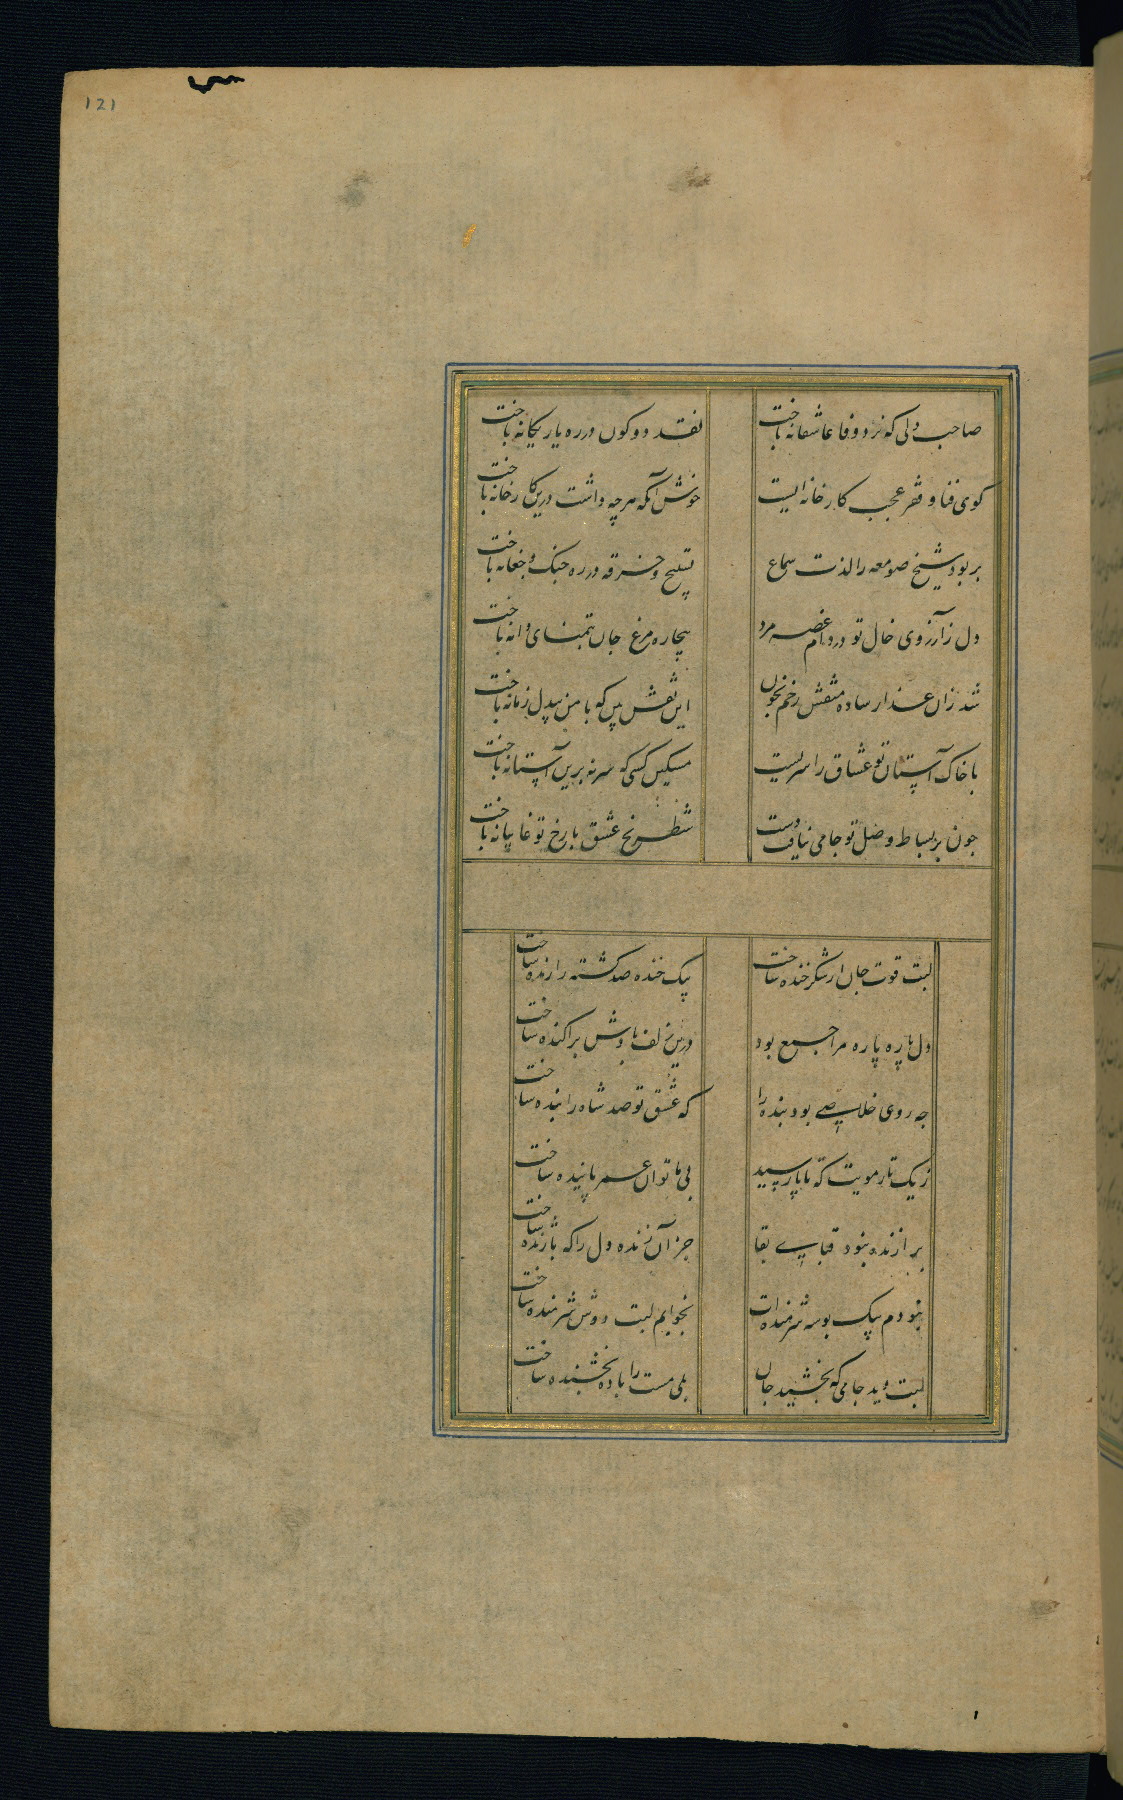 121
صاحب دلی که نرد وفا عاشقانه باخت
نقد دو کون در ره یار یکانه باخت
کوی فنا و فقر عجب کارخانه ایست
خوش آنکه هرچه داشت درین کارخانه باخت
بربود شیخ صومعه را لذت سماع
تسبیح و خرقه در ره چنک و چغانه باخت
دل ز آرزوی خال تو در دام غصه مرد
بیچاره مرغ جان بتمنای دانه باخت
شد زان عذار ساده منقش رخم بخون
این نقش بین که با من بیدل زمانه باخت
با خاک آستان تو عشاق را سریست
مسکین کسی که سر نه برین آستانه باخت
چون بر بساط وصل تو جامی نیافت دست
شطرنج عشق با رخ تو غایبانه باخت
لبت قوت جان از شکرخنده ساخت
بیک خنده صد کشته را زنده ساخت
دل پاره پاره مرا جمع بود
زلف بادش براکنده ساخت
چه روی خلاصی بود بنده را
که عشق تو صد شاه را بنده ساخت
ز یک تار مویت که تا پا رسید
بی ما توان عمر پاینده ساخت
برازنده نبود قبای بقا
جز آن زنده دل را که با ژنده ساخت
نبودم بیک بوسه شرمنده ات
بخوابم لبت دوش شرمنده ساخت
لبت دید جامی که بخشید جان
بلی مست را باده بخشنده ساخت